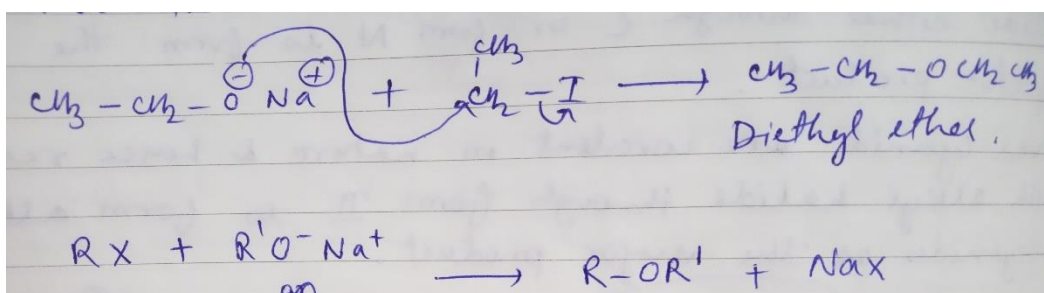 CH3
CH3 - CH2 - O⊖ Na⊕ + CH2 - I ⟶ CH3 - CH2 - OCH2CH3
Diethyl ether.
RX + R'O- Na+ ⟶ R-OR' + NaX